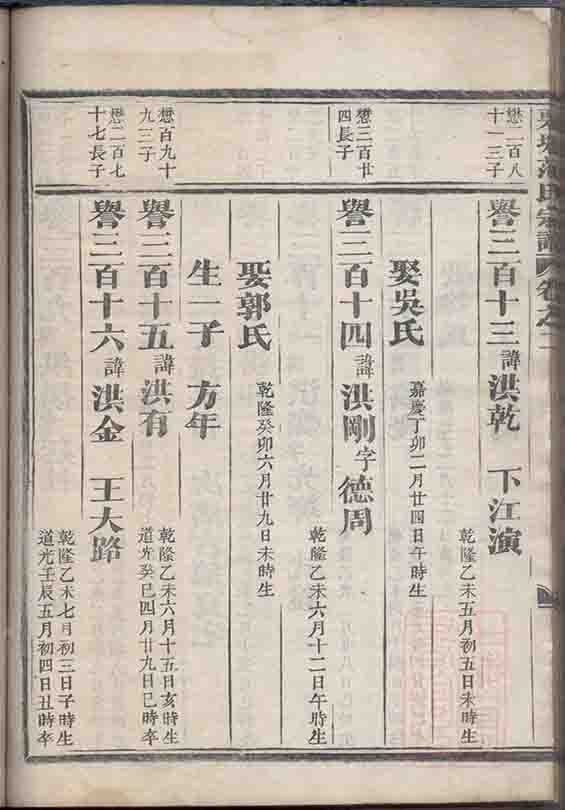 氏宗譜 卷之二
懋二百八
十一三子
譽三百十三 諱洪乾 下江演
乾隆乙未五月初五日未時生
娶吳氏 嘉慶丁卯二月廿四日午時生
懋三百廿
四長子
譽三百十四 諱洪剛 字德周
乾隆乙未六月十二日午時生
娶郭氏 乾隆癸卯六月廿九日未時生
生一子 方年
懋百九十
九三子
譽三百十五 諱洪有
乾隆乙未六月十五日亥時生
道光癸巳四月廿九日巳時卒
懋二百七
十七長子
譽三百十六 諱洪金 王大路
乾隆乙未七月初三日子時生
道光壬辰五月初四日丑時卒